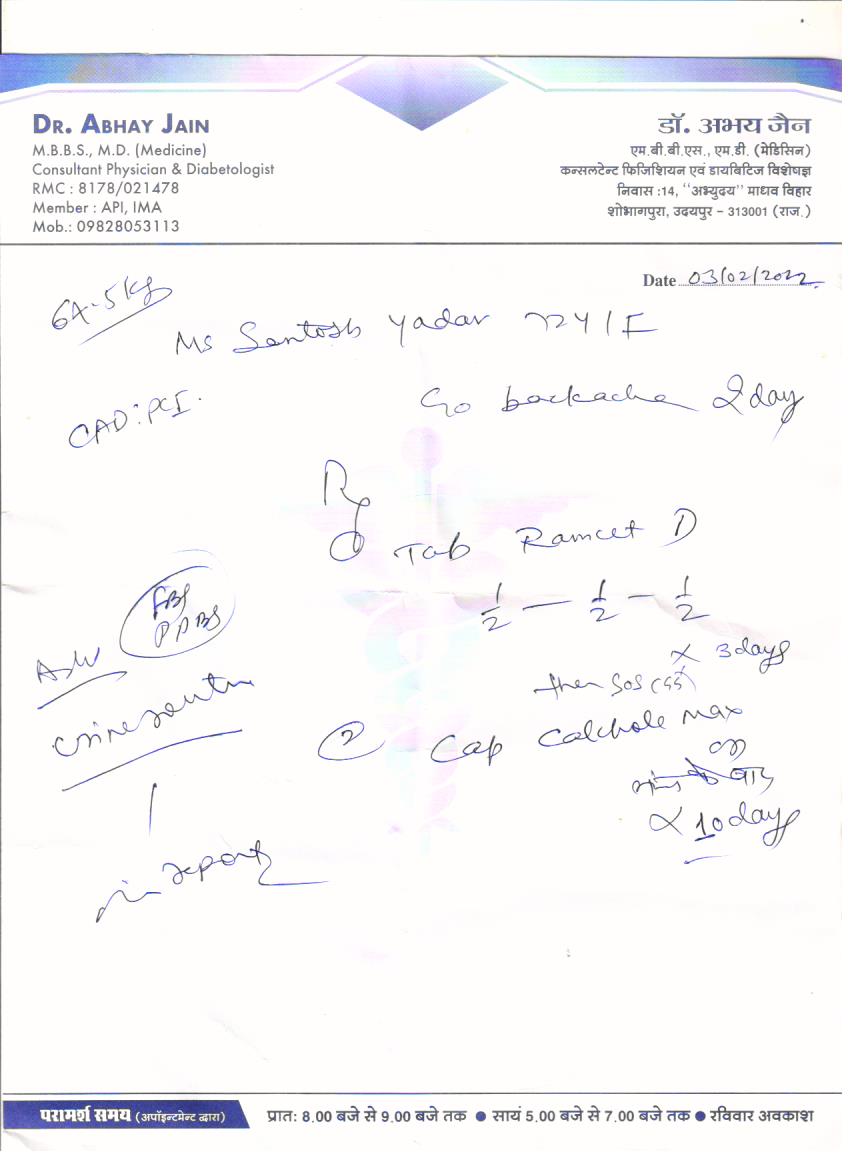 DR. ABHAY JAIN
M.B.B.S., M.D. (Medicine)
Consultant Physician & Diabetologist
RMC : 8178/021478
Member : API, IMA
Mob.: 09828053113
डॉ. अभय जैन
एम.बी.बी.एस., एम.डी. (मेडिसिन)
कन्सलटेन्ट फिजिशियन एवं डायबिटिज विशेषज्ञ
निवास :14, "अभ्युदय" माधव विहार
शोभागपुरा, उदयपुर – 313001 (राज.)
Date 03/02/2022
Kg
Ms Santosh Yadav
CAD: PCI.
c/o backache 2 day
Rx
Tab Ramcet D
1/2 — 1/2 — 1/2
x 3 days
then SOS
FBS
PPBS
Adv
② Cap Calchole Max
OD
के बाद
x 10 days
परामर्श समय (अपॉइन्टमेन्ट द्वारा) प्रात: 8.00 बजे से 9.00 बजे तक ● सायं 5.00 बजे से 7.00 बजे तक ● रविवार अवकाश